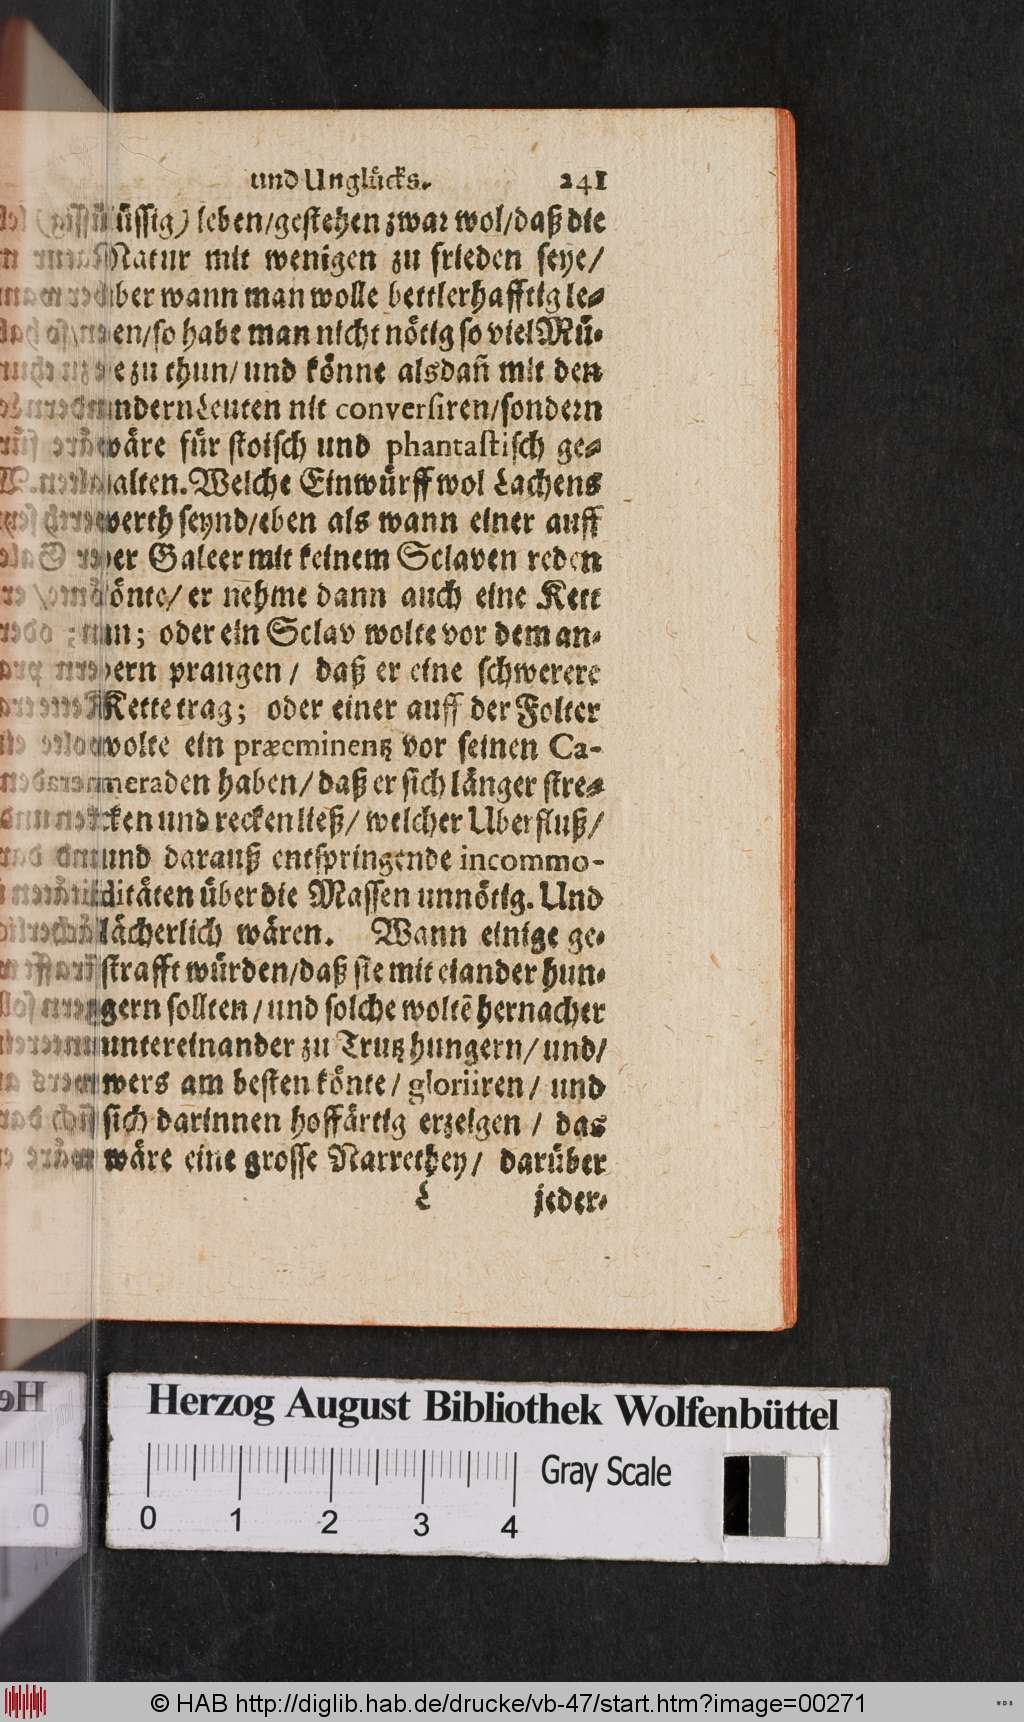 und Unglücks. 241
üssig) leben/gestehen zwar wol/daß die
Natur mit wenigen zu frieden seye/
aber wann man wolle bettlerhafftig le-
ben/so habe man nicht nötig so viel Mü-
he zu thun/ und könne alsdañ mit den
andern Leuten nit conversiren/sondern
wäre für stoisch und phantastisch ge-
halten. Welche Einwürff wol Lachens
werth seynd/eben als wann einer auff
der Galeer mit keinem Sclaven reden
könte/ er nehme dann auch eine Kett
an; oder ein Sclav wolte vor dem an-
dern prangen/ daß er eine schwerere
Kette trag; oder einer auff der Folter
wolte ein præeminentz vor seinen Ca-
meraden haben/ daß er sich länger stre-
cken und recken ließ/ welcher Uberfluß/
und darauß entspringende incommo-
ditäten über die Massen unnötig. Und
lächerlich wären. Wann einige ge-
strafft würden/daß sie mit einander hun-
gern sollten/ und solche woltē hernacher
untereinander zu Trutz hungern/ und/
wers am besten könte/ gloriiren/ und
sich darinnen hoffärtig erzeigen/ das
wäre eine grosse Narrethey/ darüber
L jeder-
Herzog August Bibliothek Wolfenbüttel
Gray Scale
0 1 2 3 4
© HAB http://diglib.hab.de/drucke/vb-47/start.htm?image=00271